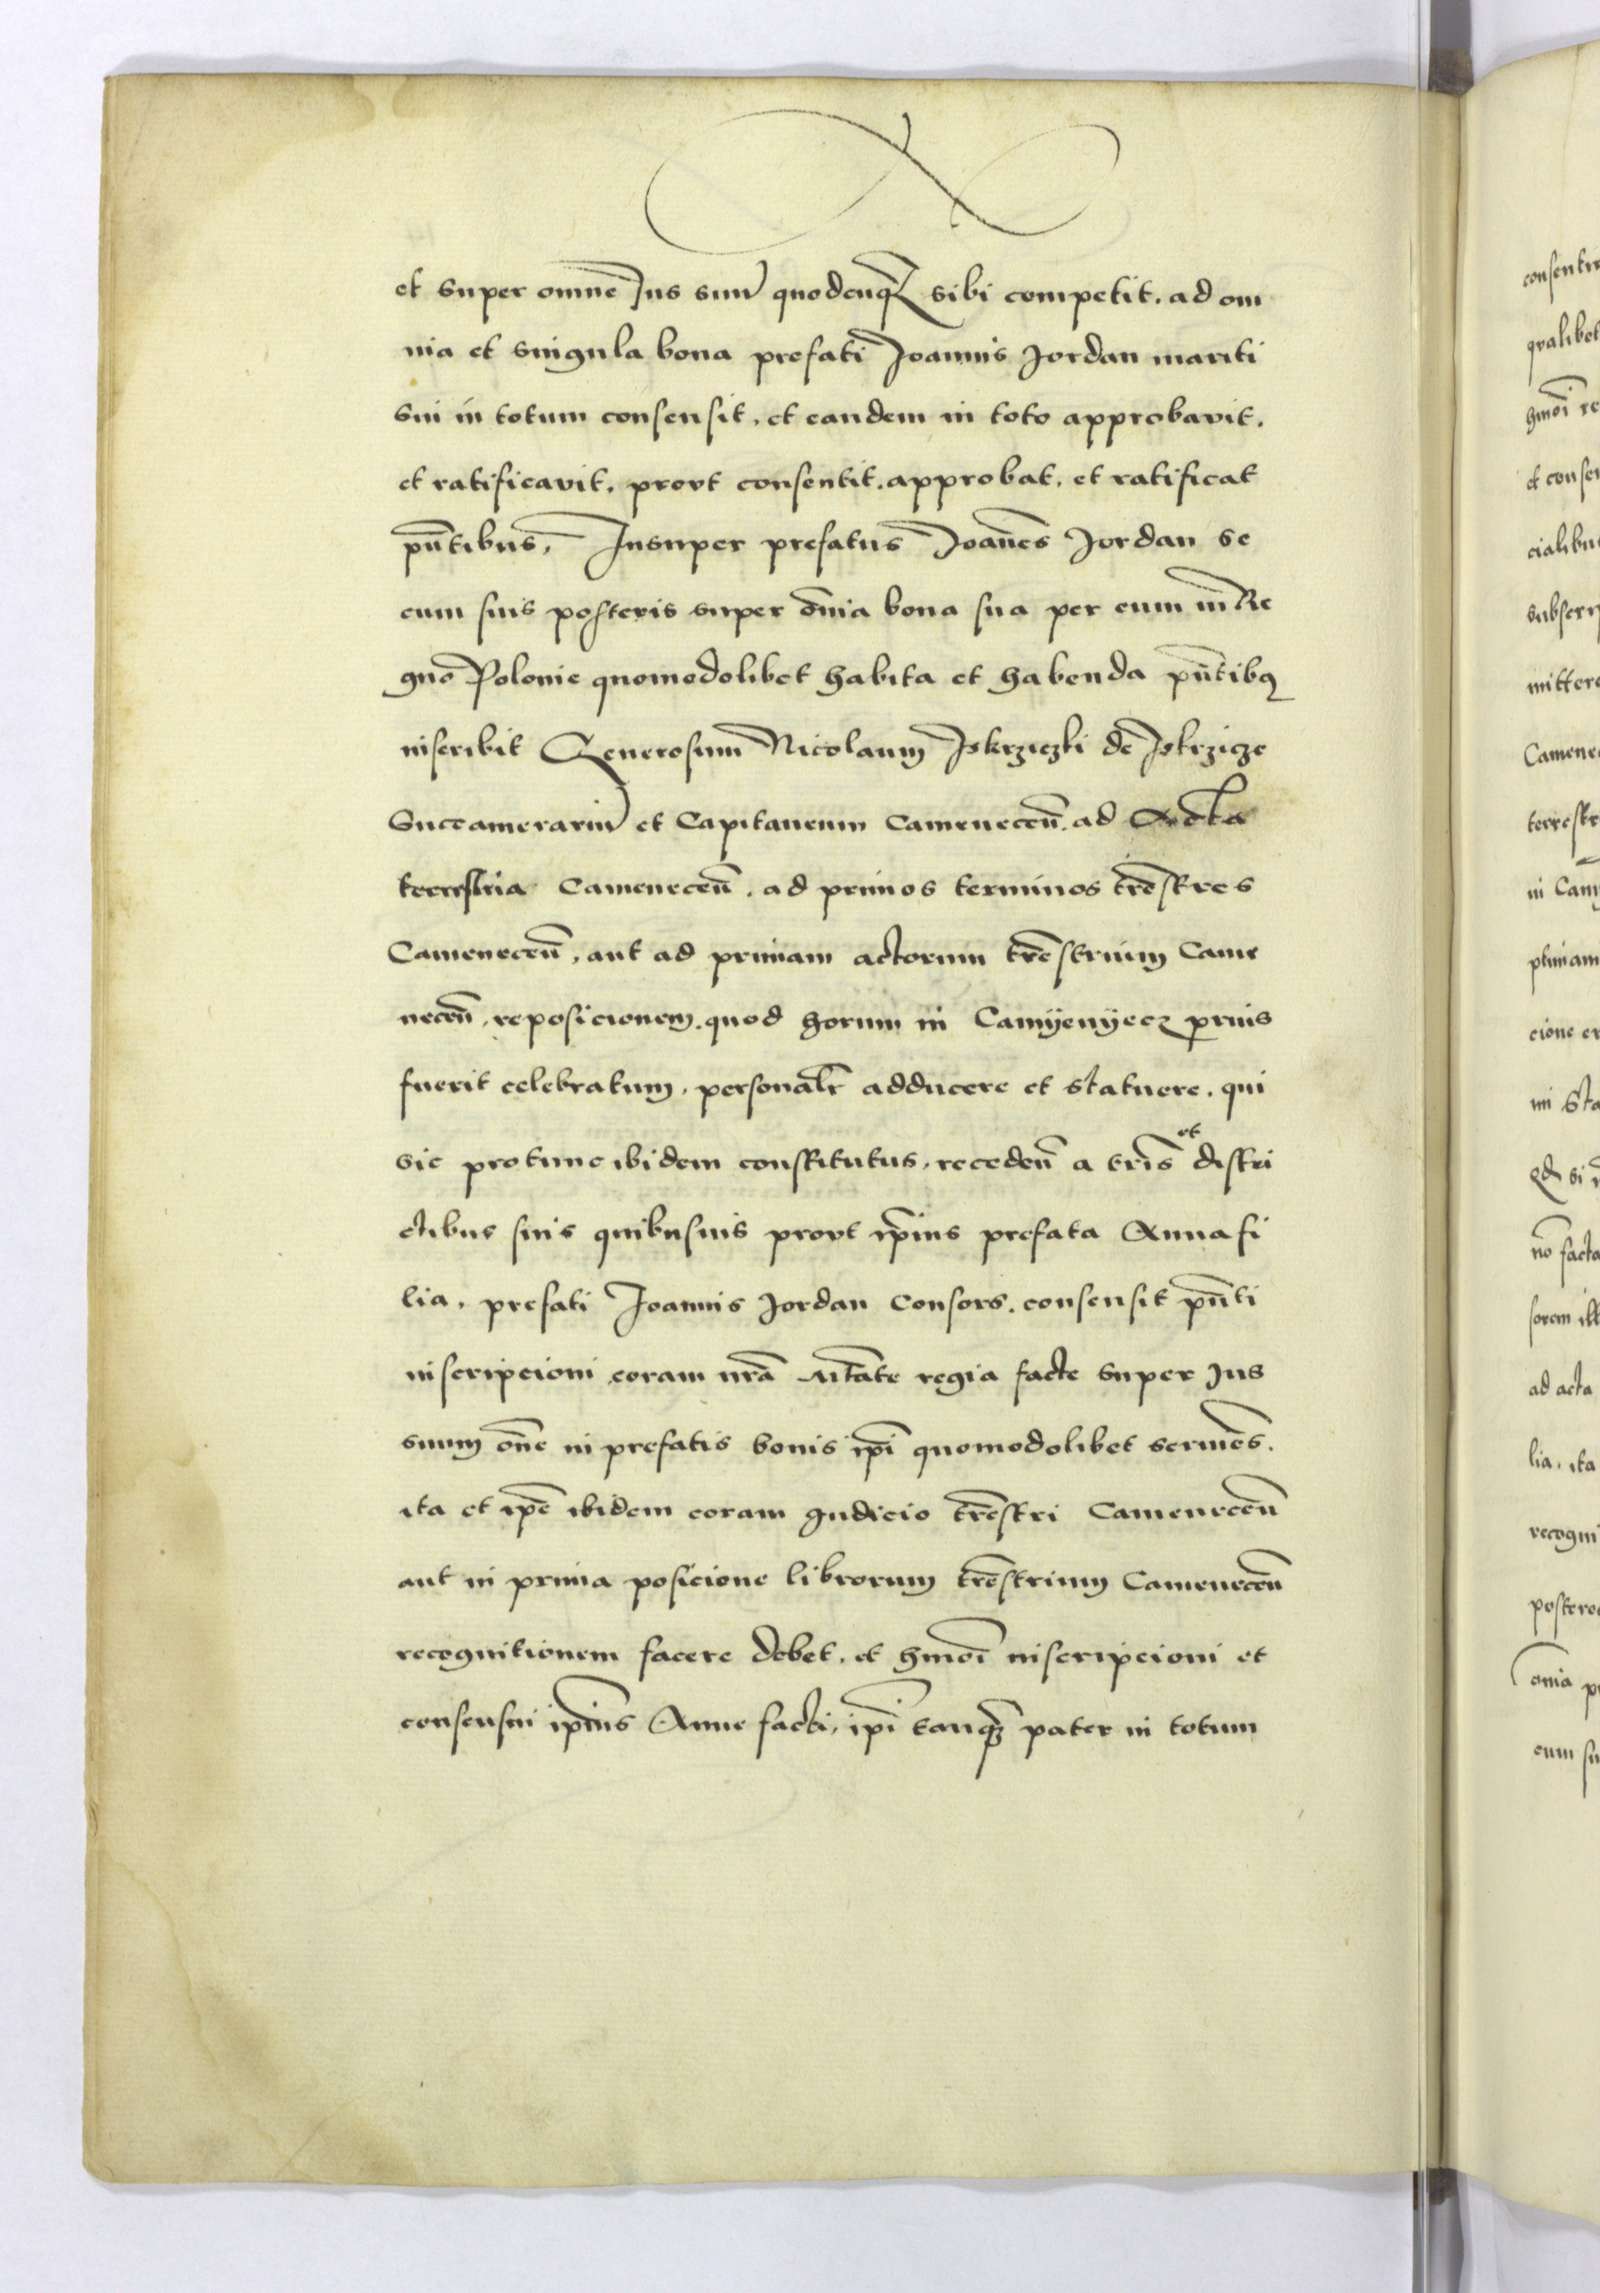 et super omne Jus suū quodcuqȝ sibi competit. ad om
nia et singula bona prefati Joannis Jordan mariti
sui in totum consensit, et eandem in toto approbavit.
et ratificavit, prout consentit. approbat, et ratificat
pn̄tibus, Insuper prefatus Joan̄es Jordan se
cum suis posteris super om̄ia bona sua per eum in Re
gno Polonie quomodolibet habita et habenda pn̄tibꝫ
inscribit Generosum Nicolaum Iskrziczki de Iskrzicze
Succamerariū et Capitaneum Camenecen̄. ad Acta
terrestria Camenecen̄. ad primos terminos tr̄estres
Camenecen̄, aut ad primam actorum tr̄estrium Came
necen̄, reposicionem. quod horum in Camÿenÿecz prius
fuerit celebratum, personalr̄ adducere et statuere. qui
sic protunc ibidem constitutus, receden̄ a tr̄is et distri
ctibus suis quibusuis prout ip̄ius prefata Anna fi
lia, prefati Joannis Jordan Consors. consensit pn̄ti
inscripcioni coram nr̄a Mt̄ate regia facte super Jus
suum om̄e in prefatis bonis ip̄i quomodolibet servien̄s.
ita et ip̄e ibidem coram Judicio tr̄estri Camenecen̄
aut in prima posicione librorum tr̄estrium Camenecen̄
recognitionem facere debet. et hmōi inscripcioni et
consensui ip̄ius Anne facti, ip̄i tanqȝ pater in totum
consentir
qualibet
hmōi re
et consen
cialibu
subscri
mittere
Camene
terrestr
in Cam
primam
cione
mi Sta
Qđ si
nō facta
sorem ill
ad acta
lia, ita
recogni
postero
om̄ia p
cum su